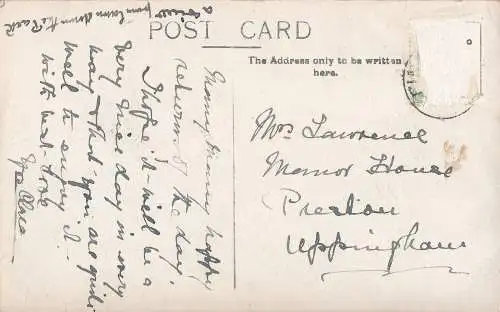 a view from lawn down the Park
POST CARD
The Address only to be written
here.
Many Many happy
returns of the day,
I hope it will be a
very nice day in every
way & that you are quite
well to enjoy it -
with best love
Yrs Clara
Mrs Lawrence
Manor House
Preston
Uppingham